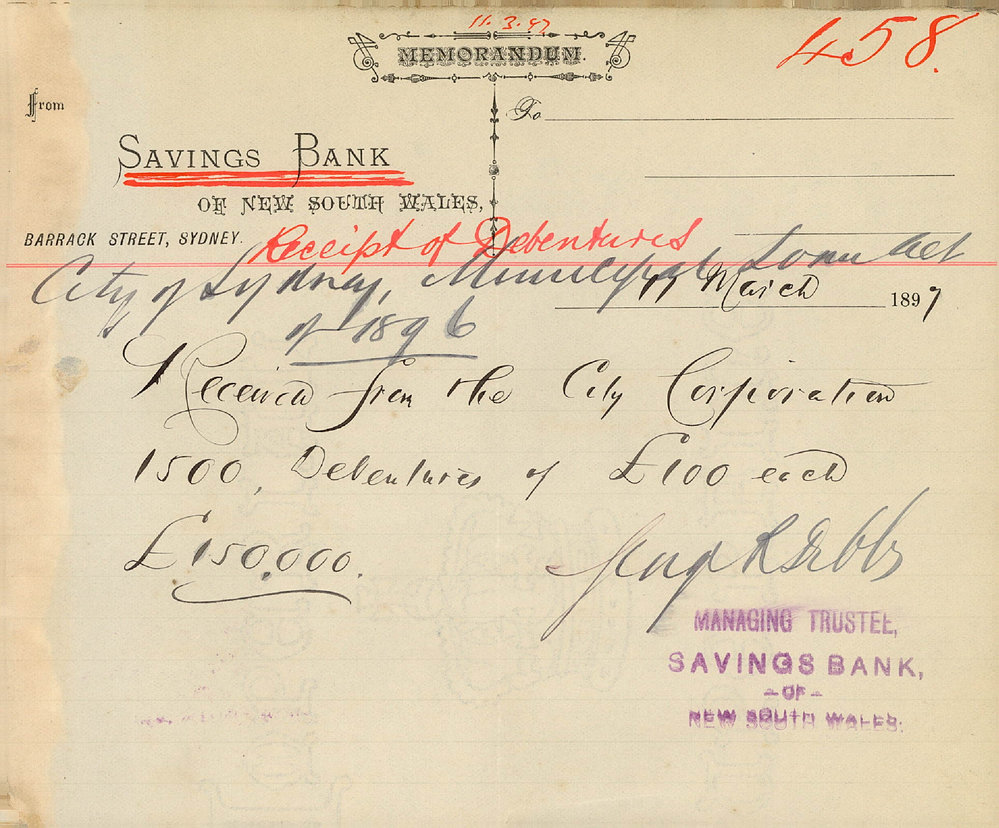 11.3.97
458.
MEMORANDUM.
From
To
SAVINGS BANK
OF NEW SOUTH WALES,
BARRACK STREET, SYDNEY.
Receipt of Debentures
City of Sydney, Municipal Loan Act
of 1896
March 1897
Received from the City Corporation
1500, Debentures of £100 each
£150,000.
MANAGING TRUSTEE,
SAVINGS BANK,
- OF -
NEW SOUTH WALES.